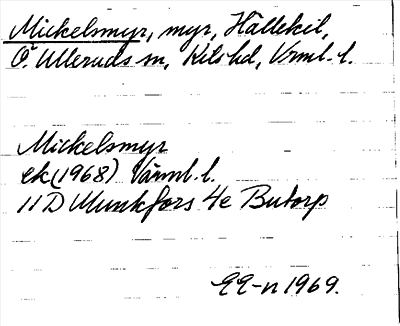 Mickelsmyr, myr, Hällekil,
Ö. Ulleruds sn, Kils hd, Vrml. l.
Mickelsmyr
ek (1968) Värml. l.
11D Munkfors 4e Butorp
1969.